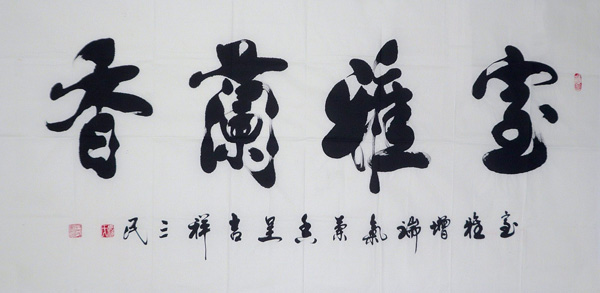 室雅蘭香
室雅增瑞氣蘭香呈吉祥三民